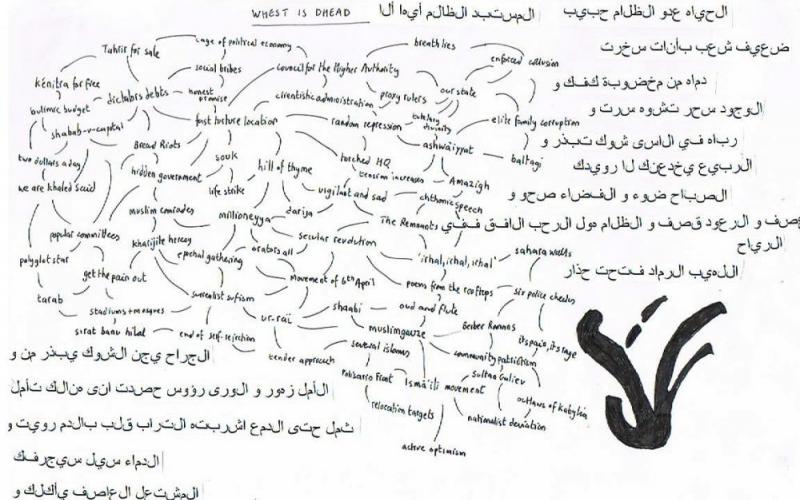 WHEST IS DHEAD
المستبد الظالم أيها ألا
الحياه عدو الظلام حبيب
ضعيف شعب بأنات سخرت
دماه من مخضوبة كفك و
الوجود سحر تشوه سرت و
رباه في الاسى شوك تبذر و
الربيع يخدعنك لا رويدك
الصباح ضوء و الفضاء صحو و
و الرعود قصف و الظلام هول الرحب الافق ففي
الرياح
اللهيب الرماد فتحت حذار
Tahrir for sale
cage of political economy
breathlies
enforced collusion
social tribes
council for the Higher Authority
kénitra for free
dictabirs debts
honest promise
clientistic administration
proxy rulers
our state
bulimic budget
fast torture location
random repression
elite family corruption
shabab-v-capital
Bread Riots
souk
torched HQ
ashwa'iyyat
baltagi
two dollars a day
hidden government
hill of thyme
tension increases
Amazigh
we are khaled Saeid
life strike
vigilant and sad
chthonic speech
muslim comrades
millioneyya
darija
The Remnants
popular committees
kharijite heresy
secular revolution
orators all
'irhal, irhal, irhal'
sahara walls
polyglot star
epochal gathering
get the pain out
movement of 6th April
poems from the rooftops
six police checks
tarab
surrealist sufism
shaabi
oud and flute
stadiums + mosques
ur-raï
muslimgauze
Berber Romans
its pain, its rage
sirat banu hilal
end of self-rejection
several islams
community patriotism
tender approach
Sultan Galiev
Polisario Front
Ismā'īlī movement
outlaws of Kabylia
relocation targets
nationalist deviation
active optimism
الجراح يجن الشوك يبذر من و
الأمل زهور و الورى رؤوس حصدت انى هنالك تأمل
ثمل حتى الدمع اشربته التراب قلب بالدم رويت و
الدماء سيل سيجرفك
المشتعل العاصف يأكلك و